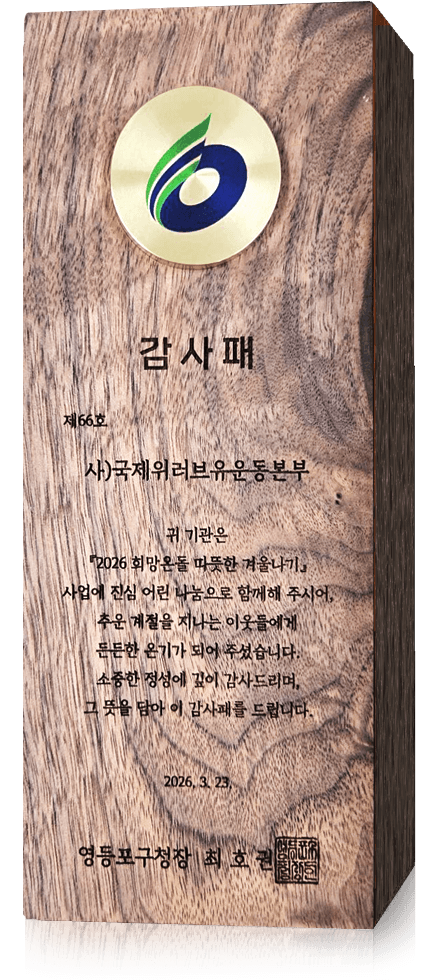 감사패
제66호
사)국제위러브유운동본부
귀 기관은
『2026 희망온돌 따뜻한 겨울나기』
사업에 진심 어린 나눔으로 함께해 주시어,
추운 계절을 지나는 이웃들에게
든든한 온기가 되어 주셨습니다.
소중한 정성에 깊이 감사드리며,
그 뜻을 담아 이 감사패를 드립니다.
2026. 3. 23.
영등포구청장 최호권